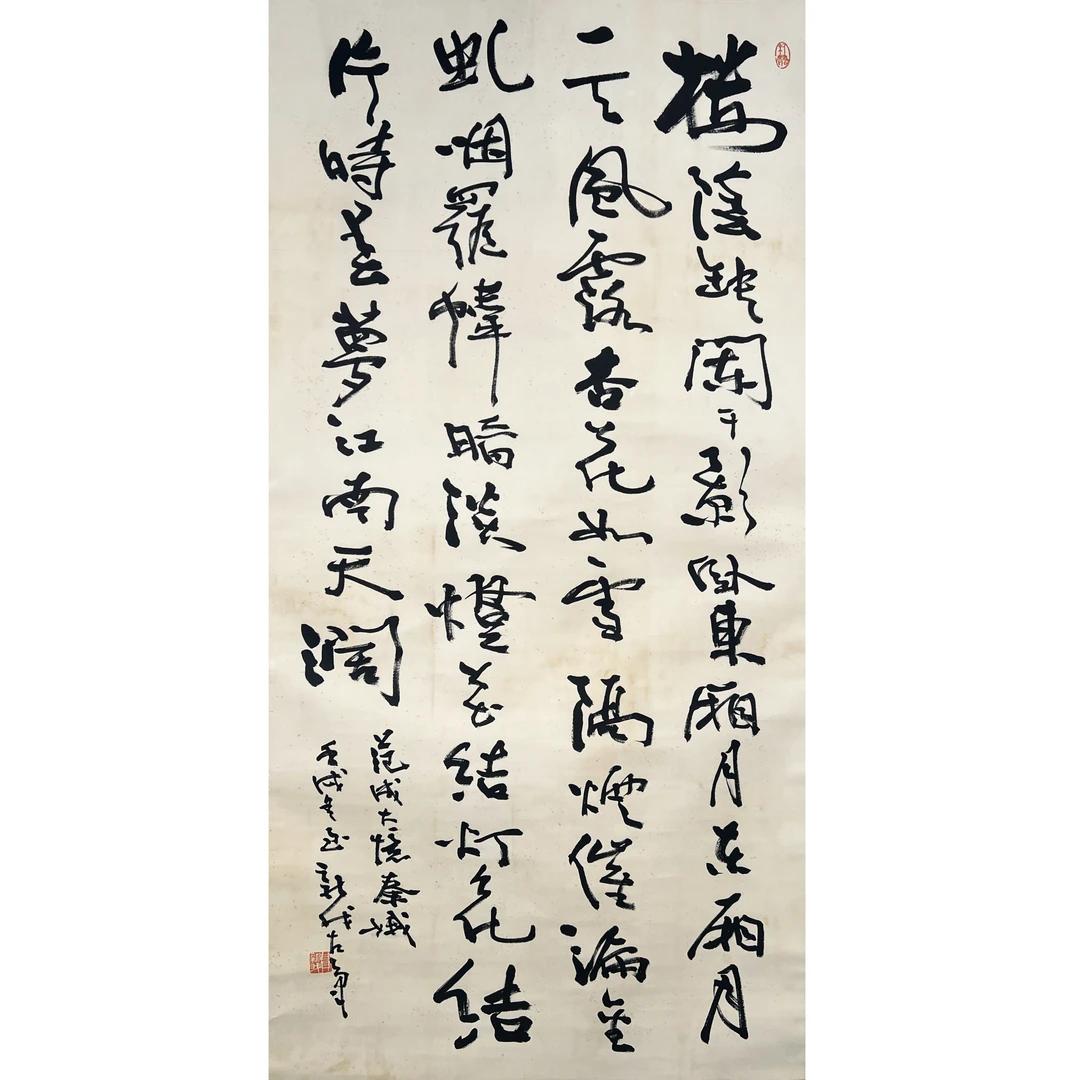 樓陰缺闌干影卧東廂月东廂月
一天風露杏花如雪隔煙催漏金
虬咽羅幃暗淡燈花結灯花結
片時春夢江南天濶
范成大憶秦娥
壬戌冬至